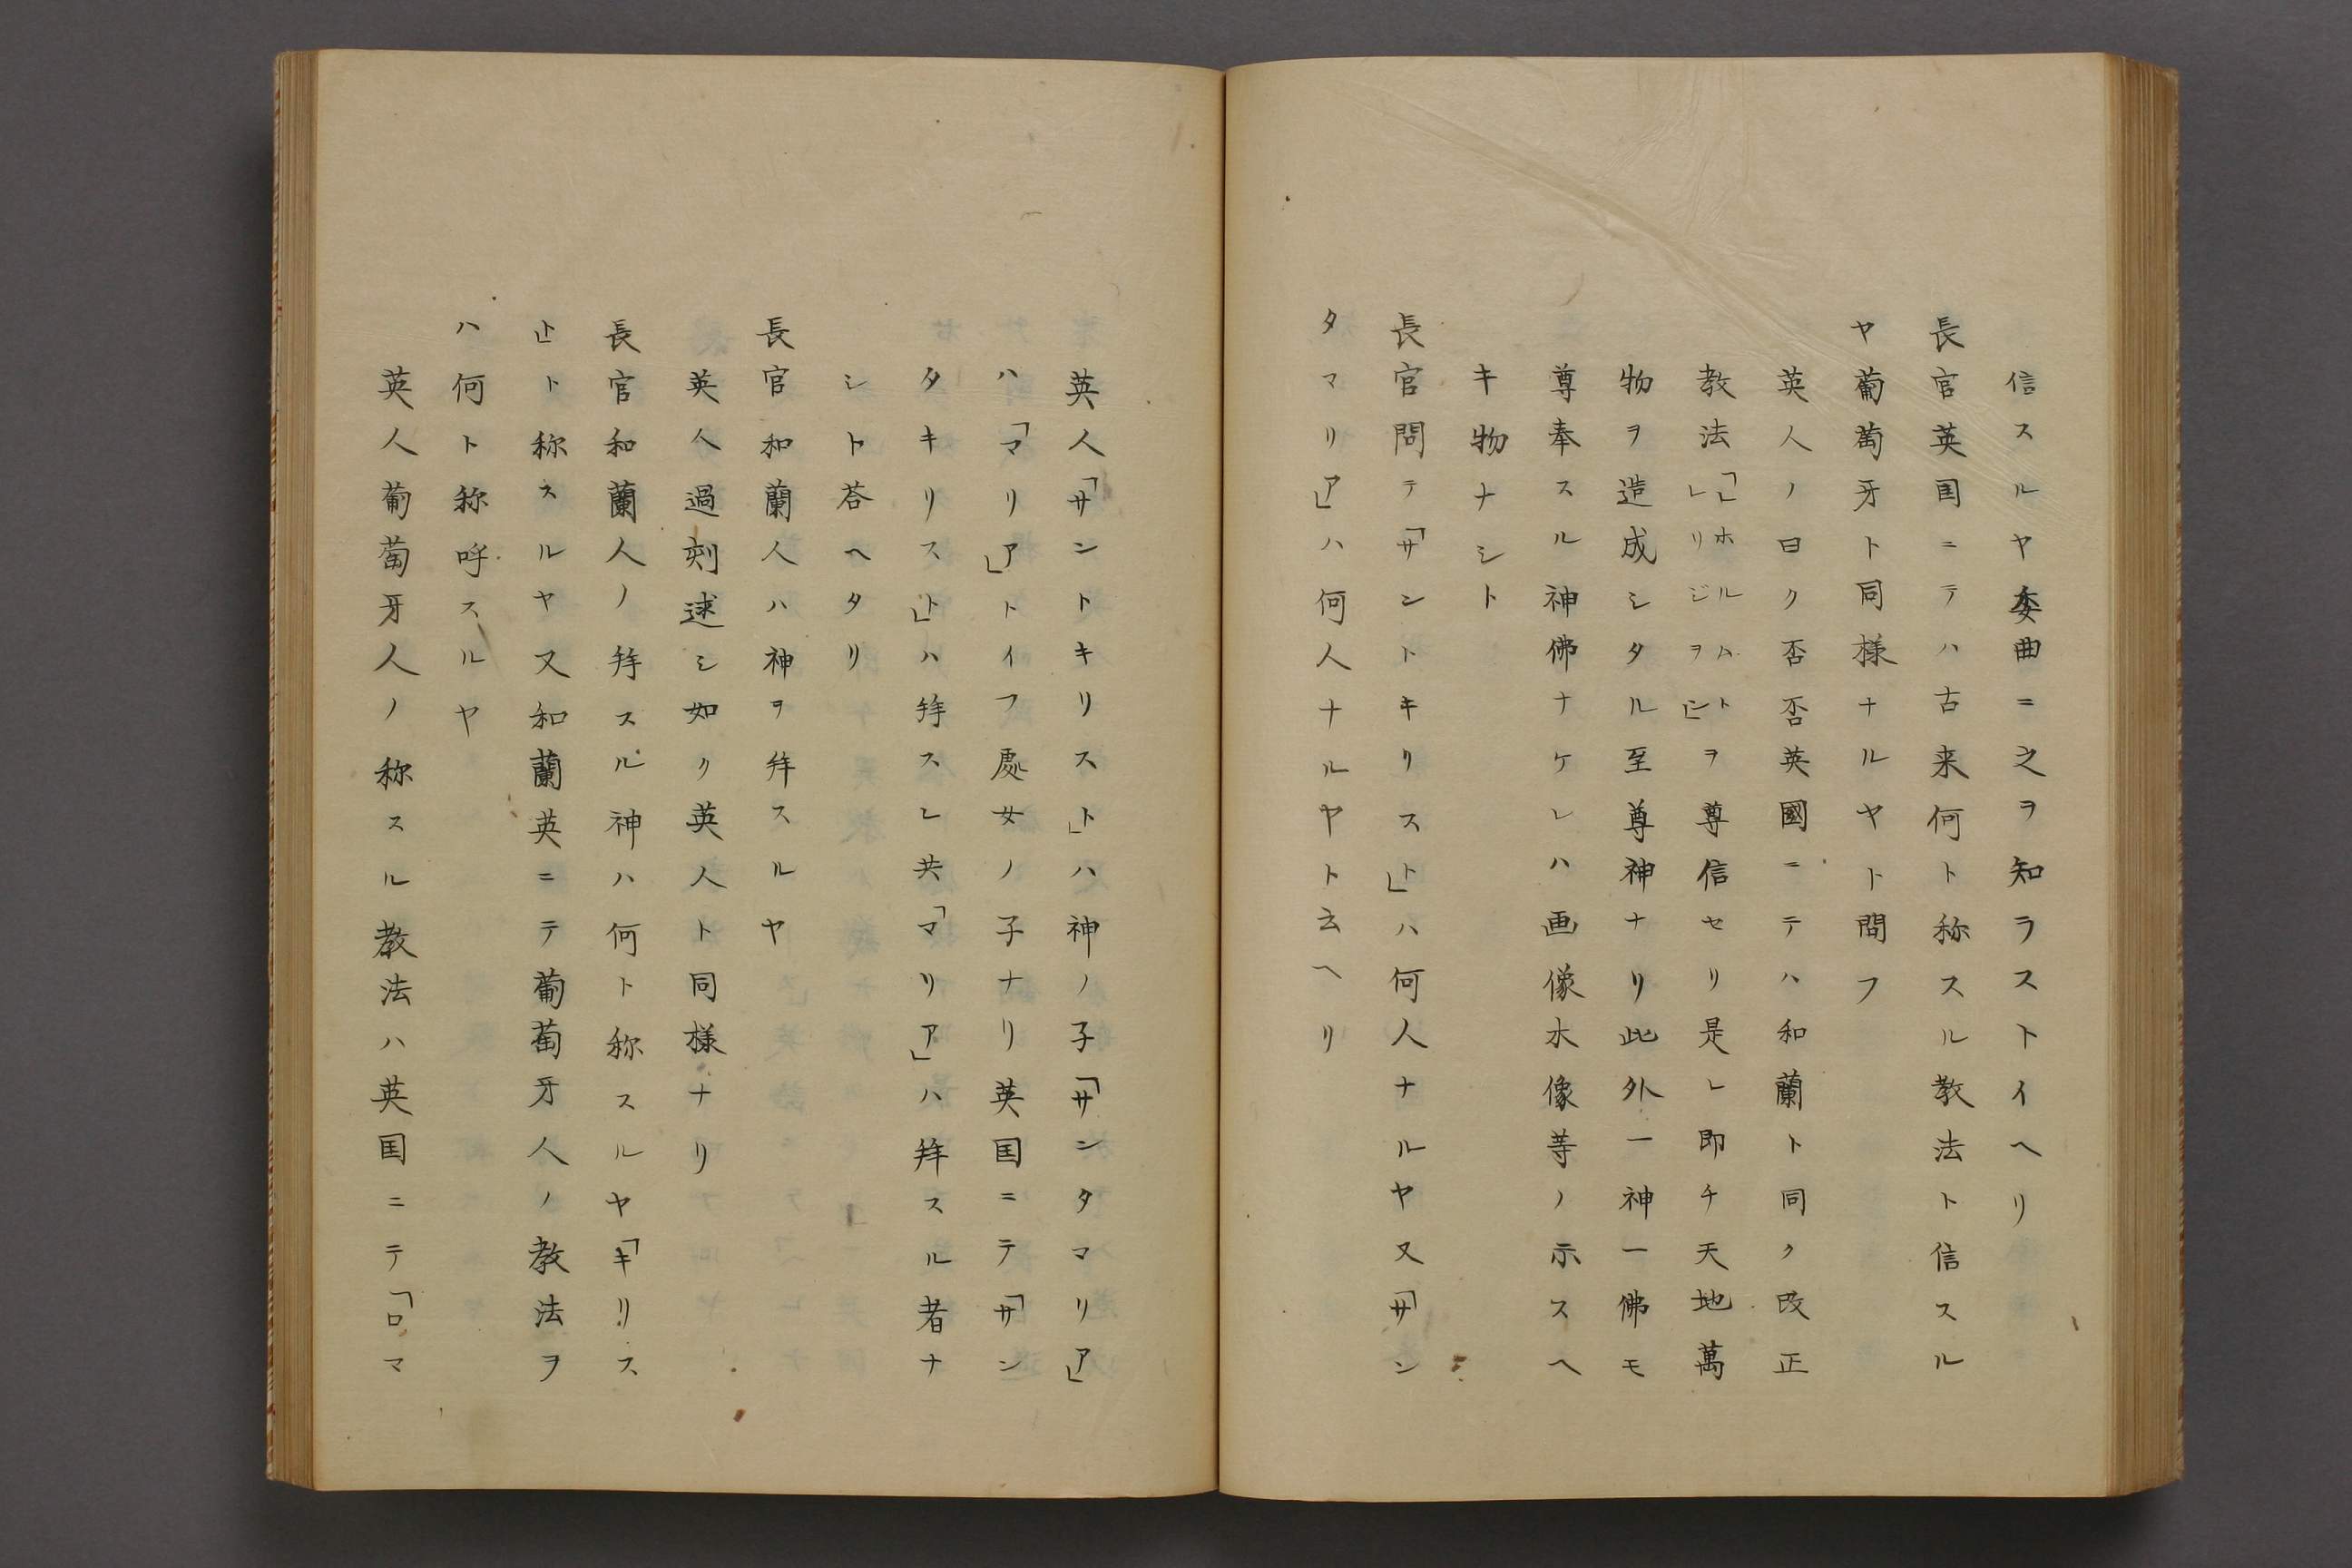 信スルヤ委曲ニ之ヲ知ラストイヘリ
長官英国ニテハ古来何ト称スル教法ト信スル
ヤ葡萄牙ト同様ナルヤト問フ
英人ノ曰ク否否英國ニテハ和蘭ト同ク改正
教法「レホルムト
レリジヲン」ヲ尊信セリ是レ即チ天地萬
物ヲ造成シタル至尊神ナリ此外一神一佛モ
尊奉スル神佛ナケレハ画像木像等ノ示スヘ
キ物ナシト
長官問テ「サントキリスト」ハ何人ナルヤ又「サン
タマリア」ハ何人ナルヤト云ヘリ
英人「サントキリスト」ハ神ノ子「サンタマリア」
ハ「マリア」トイフ處女ノ子ナリ英国ニテ「サン
タキリスト」ハ拜スレ共「マリア」ハ拜スル者ナ
シト荅ヘタリ
長官和蘭人ハ神ヲ拜スルヤ
英人過刻逑シ如ク英人ト同様ナリ
長官和蘭人ノ拜スル神ハ何ト称スルヤ「キリス
ト」ト称スルヤ又和蘭英ニテ葡萄牙人ノ教法ヲ
ハ何ト称呼スルヤ
英人葡萄牙人ノ称スル教法ハ英国ニテ「ロマ